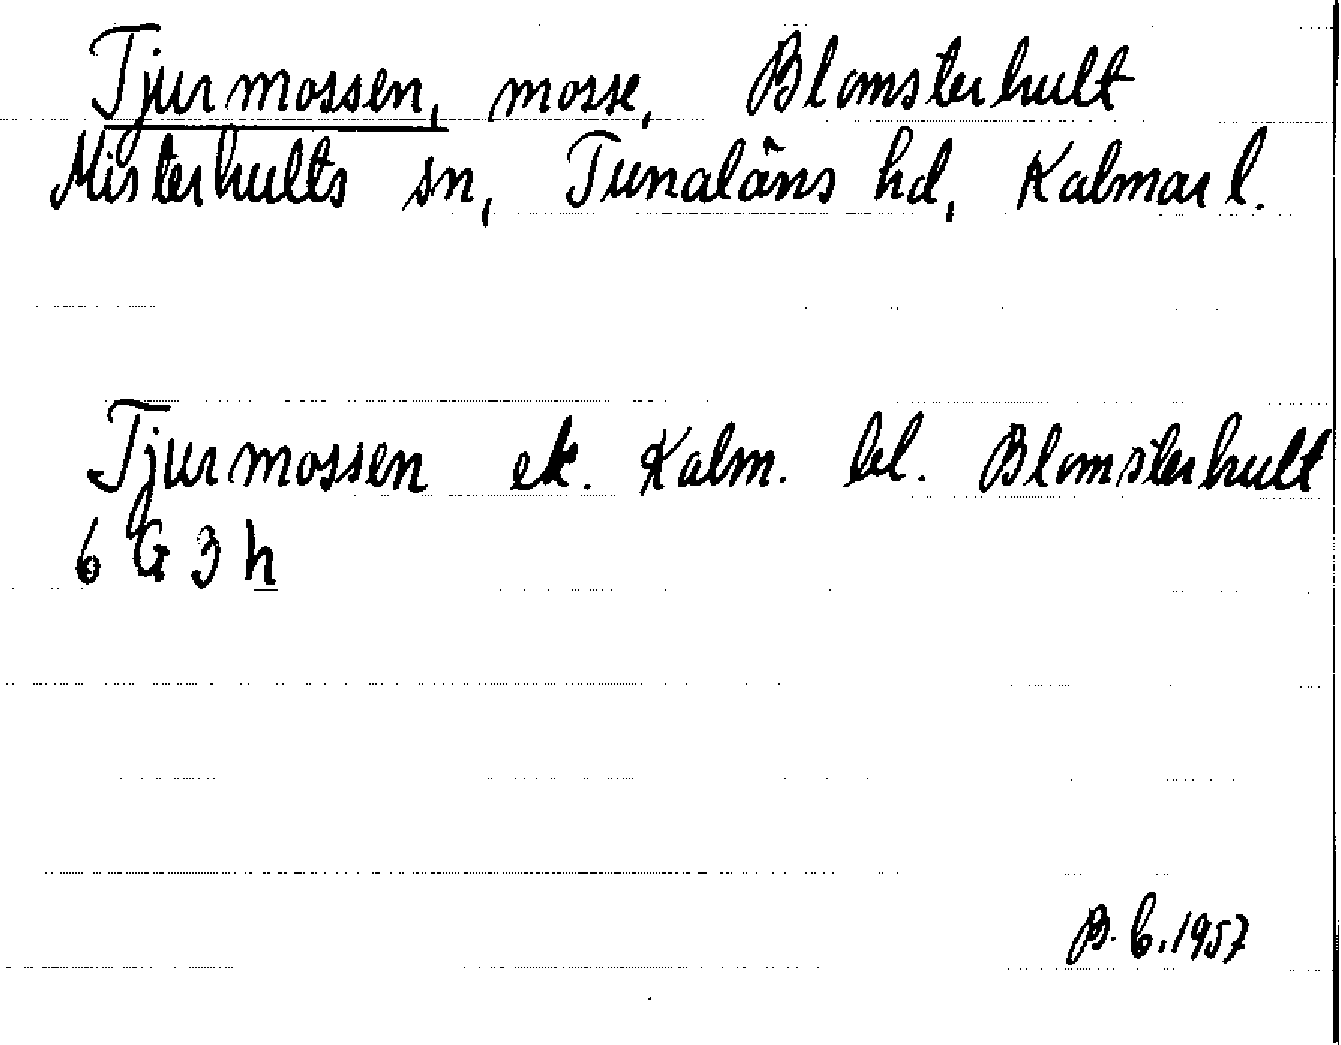 Tjurmossen, mosse, Blomsterhult
Misterhults sn, Tunaläns hd, Kalmar l.
Tjurmossen ek. Kalm. bl. Blomsterhult
6 G 3 h
B. C. 1957